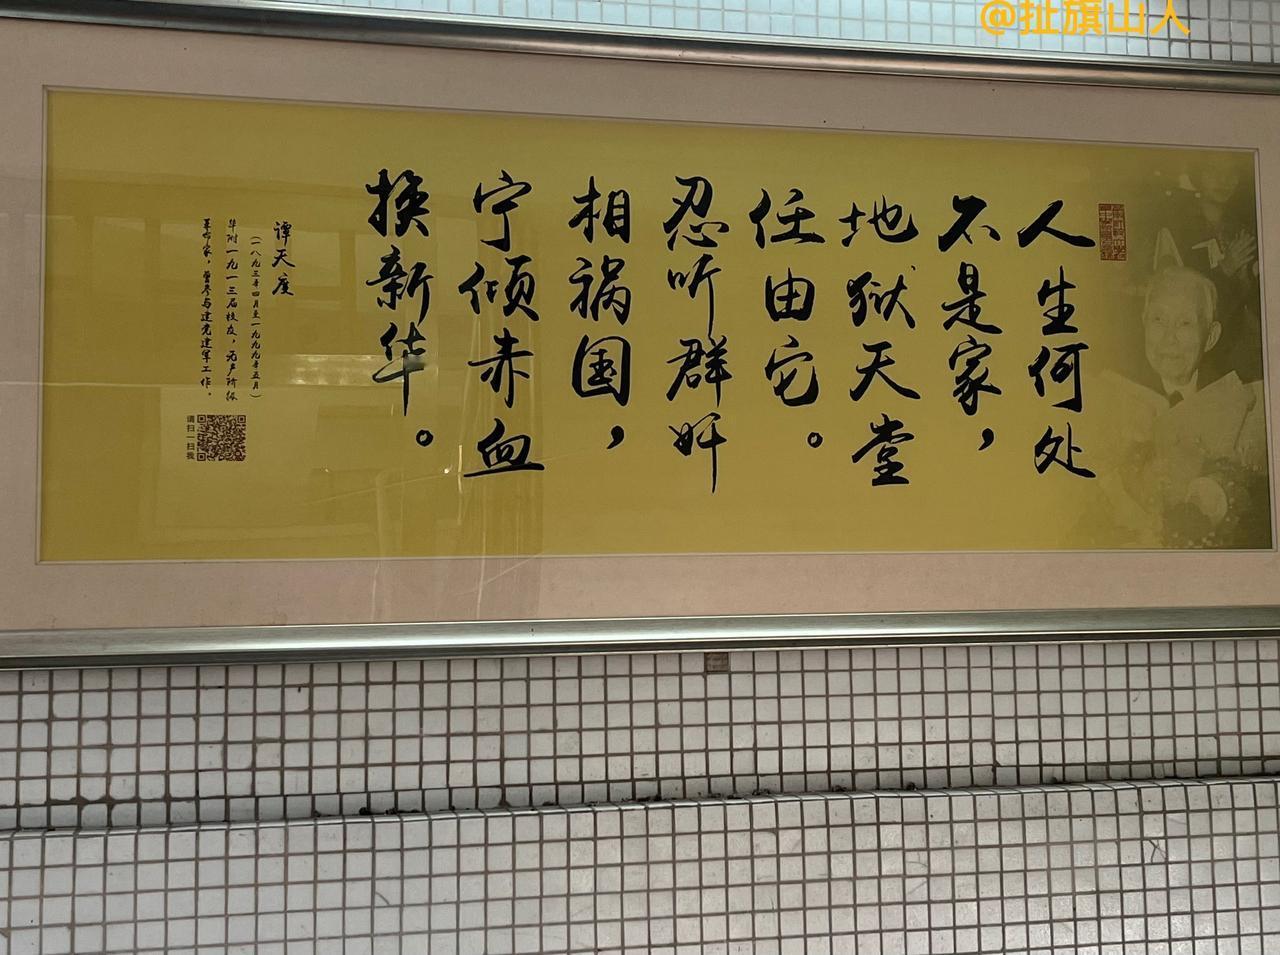 @扯旗山人
人生何处
不是家，
地狱天堂
任由它。
忍听群奸
相祸国，
宁倾赤血
换新华。
谭天度
（一八九三年四月至一九九九年五月）
华附一九一三届校友，无产阶级
革命家，曾参与建党建军工作。
请扫一扫我